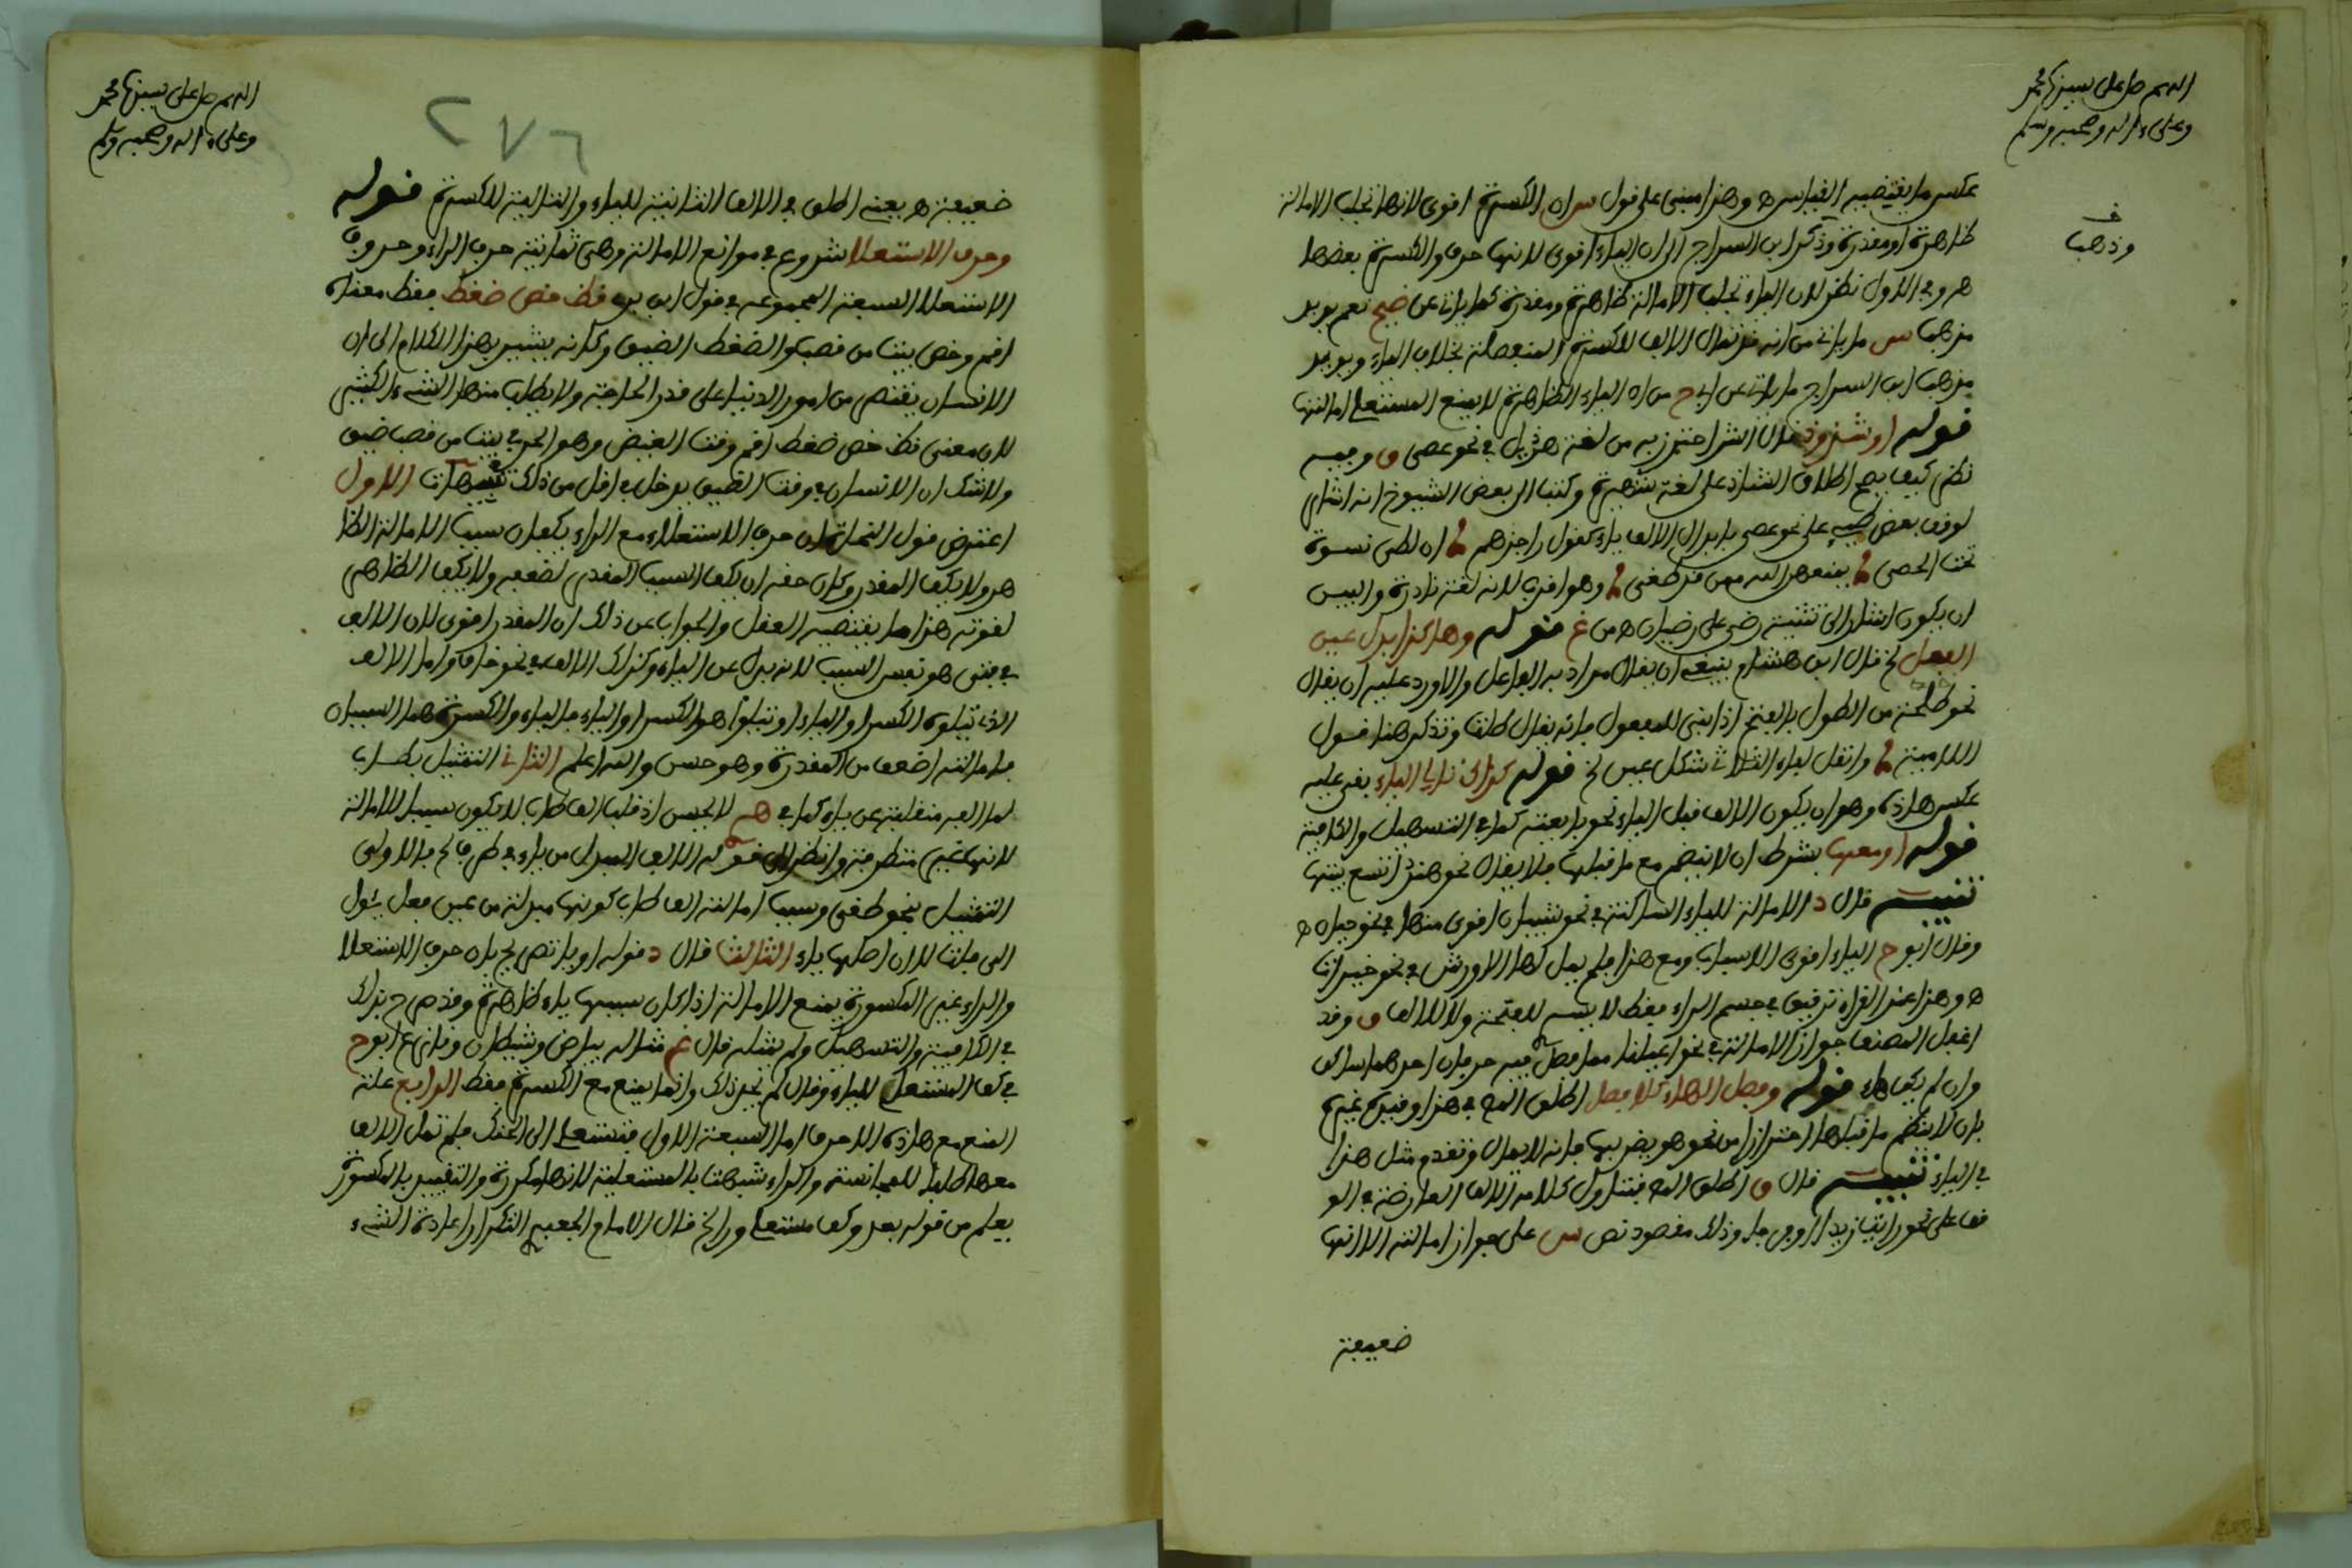 اللهم صل على سيدنا محمد
وعلى ءاله وصحبه وسلم
وذهب
عكس ما يقتضيه القياس ه وهذا مبنى على قول س ان الكسرة اقوى لانها تجلب الامالة
ظاهرة او مقدرة وذكر ابن السراج ان الياء اقوى لانها حرف والكسرة بعضها
ه وفى الاول نظر لان الياء تجلب الامالة ظاهرة ومقدرة كما ياتى عن ضيح نعم يويد
مذهب س ما ياتى من انه قد تمال الالف للكسرة المنفصلة بخلاف الياء ويويد
مذهب ابن السراج ما ياتى عن ابى ح من ان الياء الظاهرة لا يمنع المستعلى امالتها
قوله او شذوذ قال الش احترز به من لغة هذيل فى نحو عصى ق وفيه
نظر كيف يصح اطلاق الشاذ على لغة شهيرة وكتب الى بعض الشيوخ انه اشار
لوقف بعض طيء على نحو عصى بابدال الالف ياء كقول راجزهم ان لطى نسوة
تحت الغضى يمنعهن الله ممن قد طغى وهو اقرب لانه لغة نادرة واليس
ان يكون اشار الى تثنية رضى على رضيان ه من غ قوله وهاكذا بدل عين
الفعل لخ قال ابن هشام ينبغى ان يقال مراد به الفاعل والا ورد عليه ان يقال
نحو طلته من الطول بالفتح اذا بنى للمفعول فانه يقال طلت وتذكر هنا قول
اللامية وانقل لفاء الثلاثى شكل عين لخ قوله كذاك تالى الياء بقى عليه
عكس هاذه وهو ان يكون الالف قبل الياء نحو بايعته كما فى التسهيل والكافية
قوله او معها بشرط ان لا ينضم مع ما قبلها فلا يقال نحو هند اتسع بيتها
تنبيه قال د الامالة للياء الساكنة فى نحو شيبان اقوى منها فى نحو حيوان ه
وقال ابو ح الياء اقوى الاسباب ومع هذا فلم يمل لها الا ورش فى نحو خيرات
ه وهذا عند القراء ترقيق فى جسم الراء فقط لا يسم للفتحة ولا للالف ق وقد
اغفل المصنف جواز الامالة فى نحو عيلنا مما فصل فيه حرفان احدهما ساكن
وان لم يكن هاء قوله وفصل الهاء كلا فصل اطلق المص فى هذا وقيده غيره
بان لا ينضم ما قبلها احترازا من نحو هو يضربها فانه لا يمال وتقدم مثل هذا
فى الياء تنبيه قال ق اطلق المص فيتناول كلامه الالف العارضة فى الو
قف على نحو رايت زيدا وذلك مقصود نص س على جواز امالته الا انها
ضعيفة
اللهم صل على سيدنا محمد
وعلى ءاله وصحبه وسلم
٢٧٦
ضعيفة ه يعنى اطلق فى الالف الثانية للياء والتالية للكسرة قوله
وحرف الاستعلا شروع فى موانع الامالة وهى ثمانية حرف الراء وحروف
الاستعلا السبعة المجموعة فى قول ابن برى قظ خص ضغط فقظ معناه
اقم وخص بيت من قصب والضغط الضيق وكانه يشير بهذا الكلام الى ان
الانسان يقتص من امور الدنيا على قدر الحاجة ولا يطلب منها الشىء الكثير
لان معنى قظ خص ضغط اقم وقت القيض وهو الحر فى بيت من قصب ضيق
ولا شك ان الانسان فى وقت الضيق يدخل فى اقل من ذلك تنبيهات الاول
اعترض قول النحاة ان حرف الاستعلاء مع الراء يكفان سبب الامالة الظا
هر ولا يكف المقدر وكان حقه ان يكف السبب المقدر لضعفه ولا يكف الظاهر
لقوته هذا ما يقتضيه العقل والجواب عن ذلك ان المقدر اقوى لان الالف
فى فتى هو نفس السبب لانه بدل عن الياء وكذلك الالف فى نحو خاف واما الالف
الذى تتلوه الكسر او الياء او تتلو اهو الكسر او الياء فالياء والكسرة هما السببان
فامالته اضعف من المقدرة وهو حسن والله اعلم الثانى التمثيل بطاب
لما الفه منقلبة عن ياء كما فى لا يحسن اذ قلب الف طاب لا يكون سببا للامالة
لانها غير متطرفة وانظر الى قوله الالف المبدل من ياء فى طرف لخ فالاولى
التمثيل بنحو طغى وسبب امالته الف طاب كونها مبدلة من عين فعل يئول
الى فلت لان اصلها ياء الثالث قال د قوله او يا نص لخ بان حرف الاستعلا
والراء غير المكسورة يمنع الامالة اذا كان سببها ياء ظاهرة وقد صرح بذلك
فى الكافية والتسهيل ولم يمثله قال غ مثاله بياض وشيطان ونازع ابو ح
فى كف المستعلى للياء وقال لم نجد ذلك وانما يمنع مع الكسرة فقط الرابع علة
المنع مع هاذه الاحرف اما السبعة الاول فتستعلى الى الحنك فلم تمل الالف
معها طلبا للمجانسة والراء شبهت بالمستعلية لانها مكررة والتقييد بالمكسورة
يعلم من قوله بعد وكف مستعل ورا لخ قال الامام الجعبرى التكرار اعادة الشىء